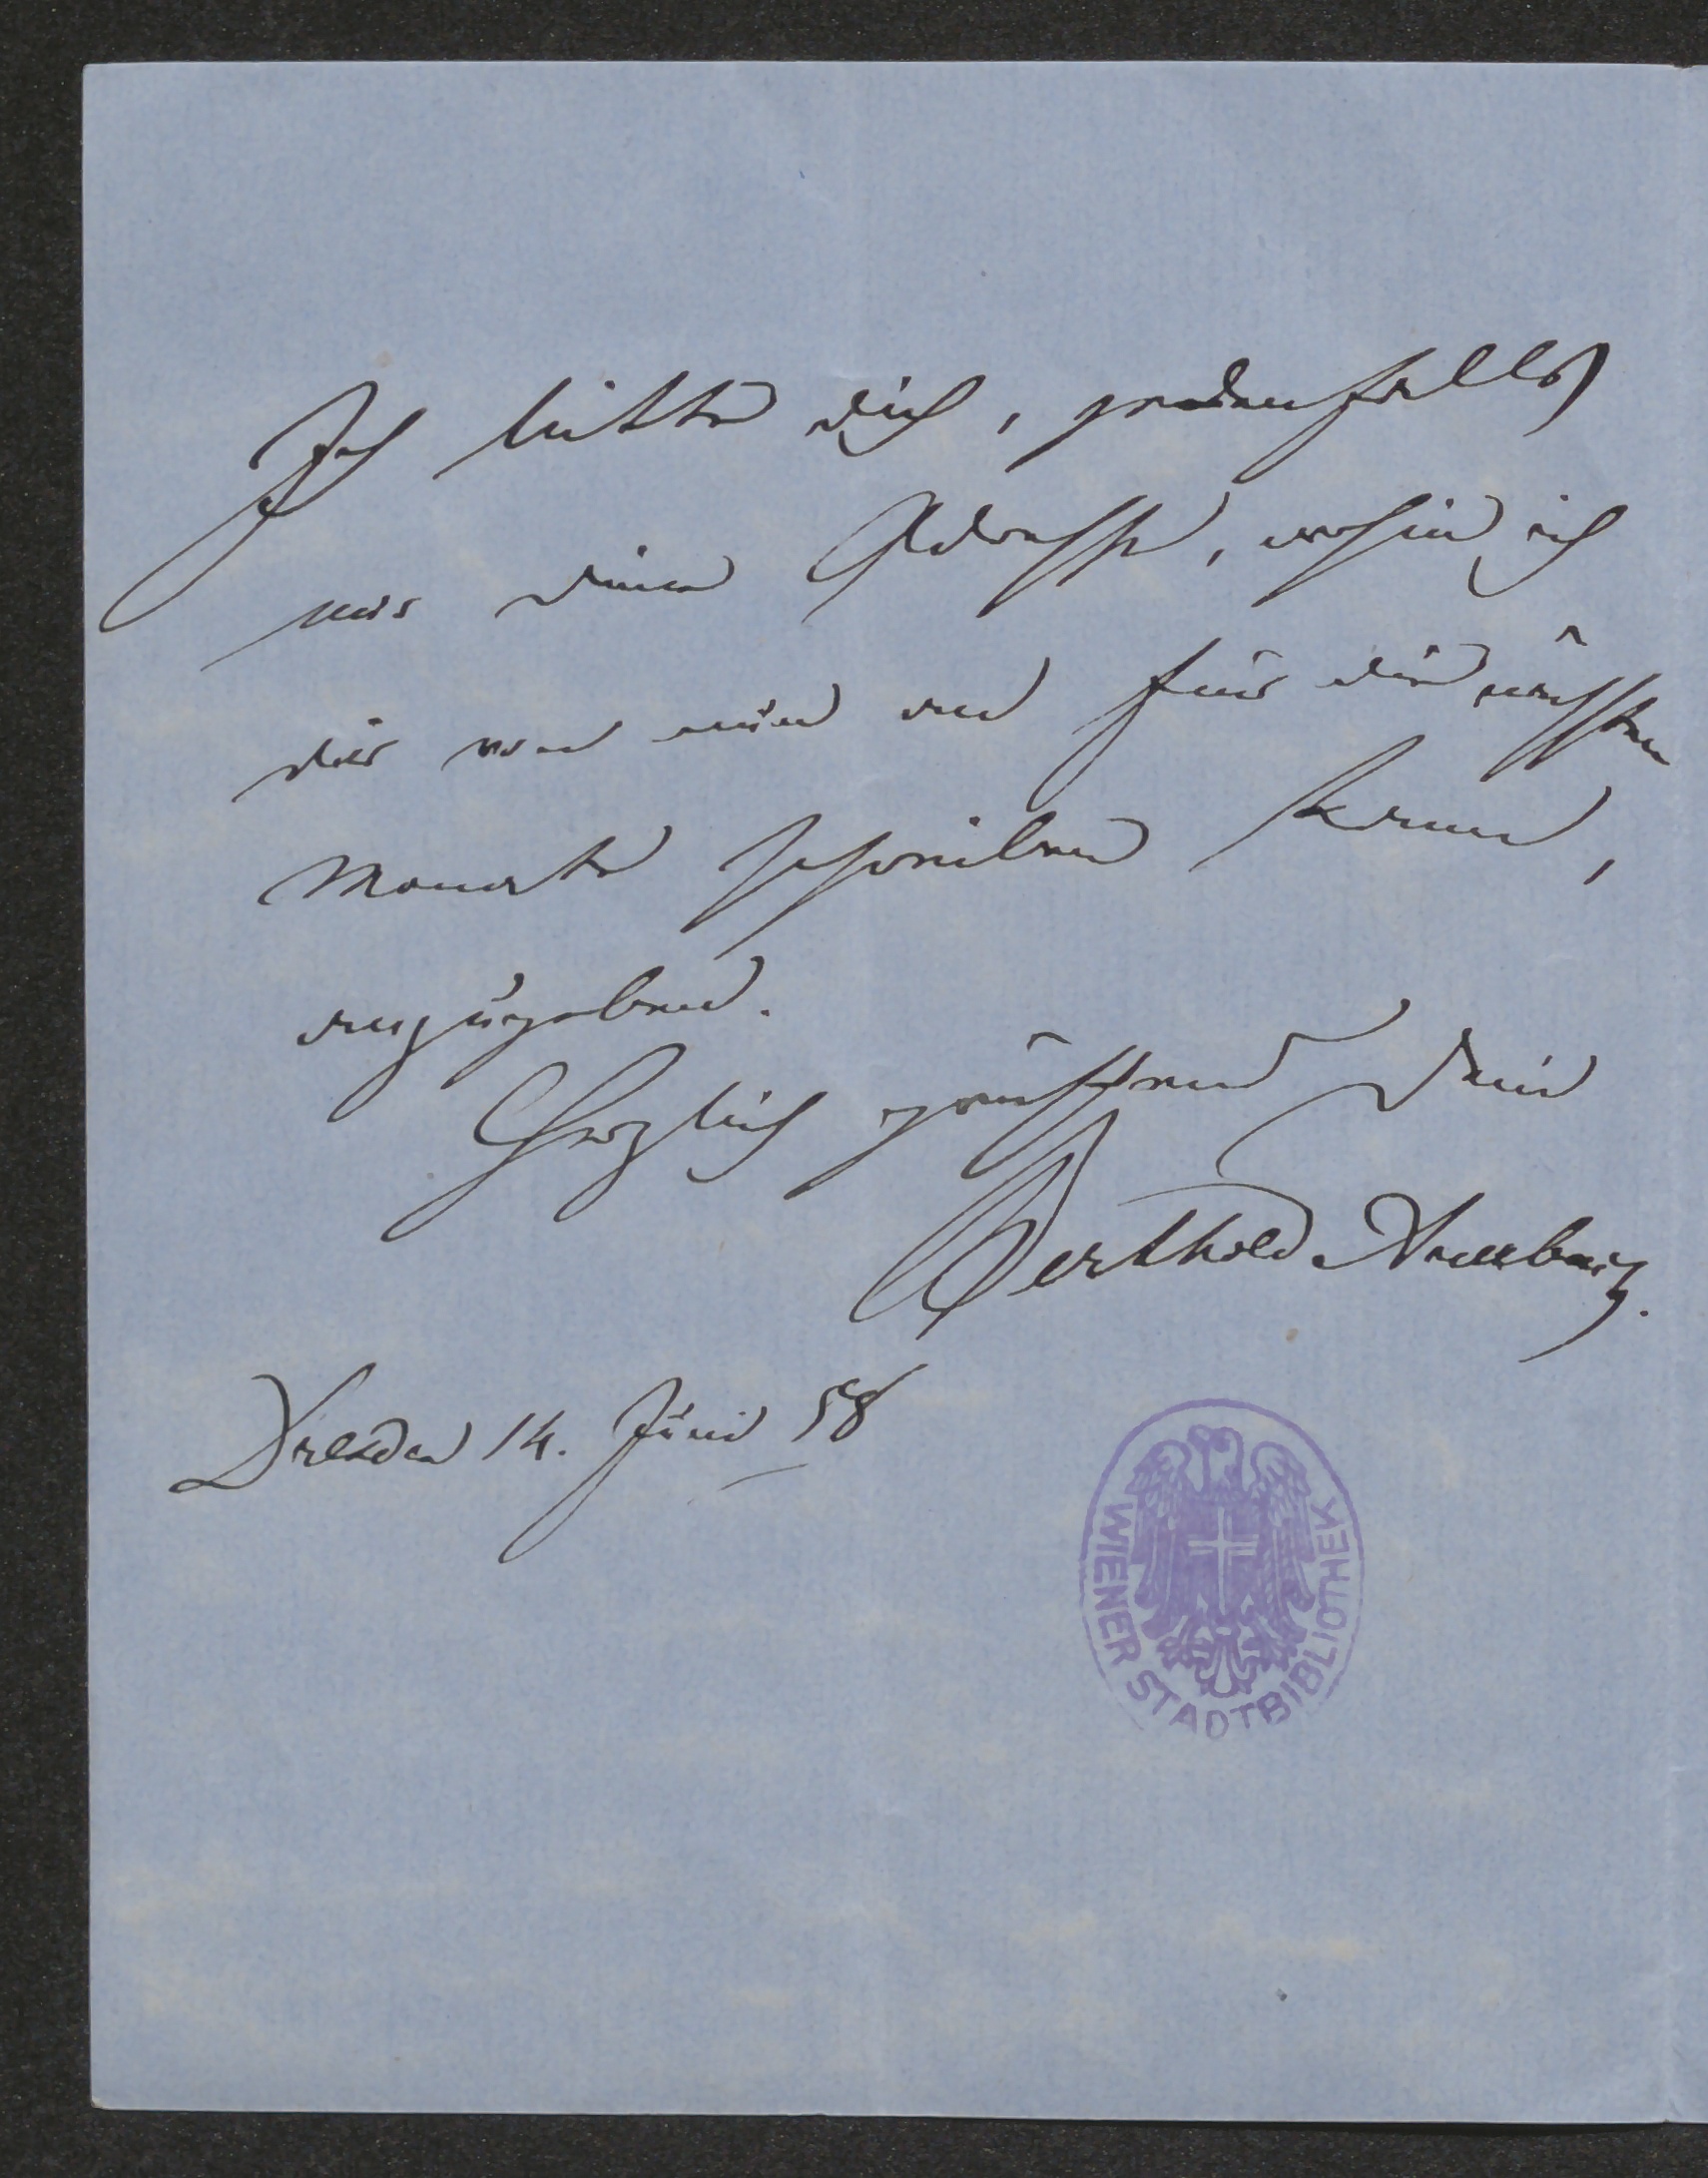 Ich bitte dich, jedenfalls
mir deine Adresse, wohin ich
dir von nun an für die nächsten
Monate schreiben kann,
anzugeben.
Herzlich grüssend dein
Berthold Auerbach.
Dresden 14. Juni 58
WIENER STADTBIBLIOTHEK